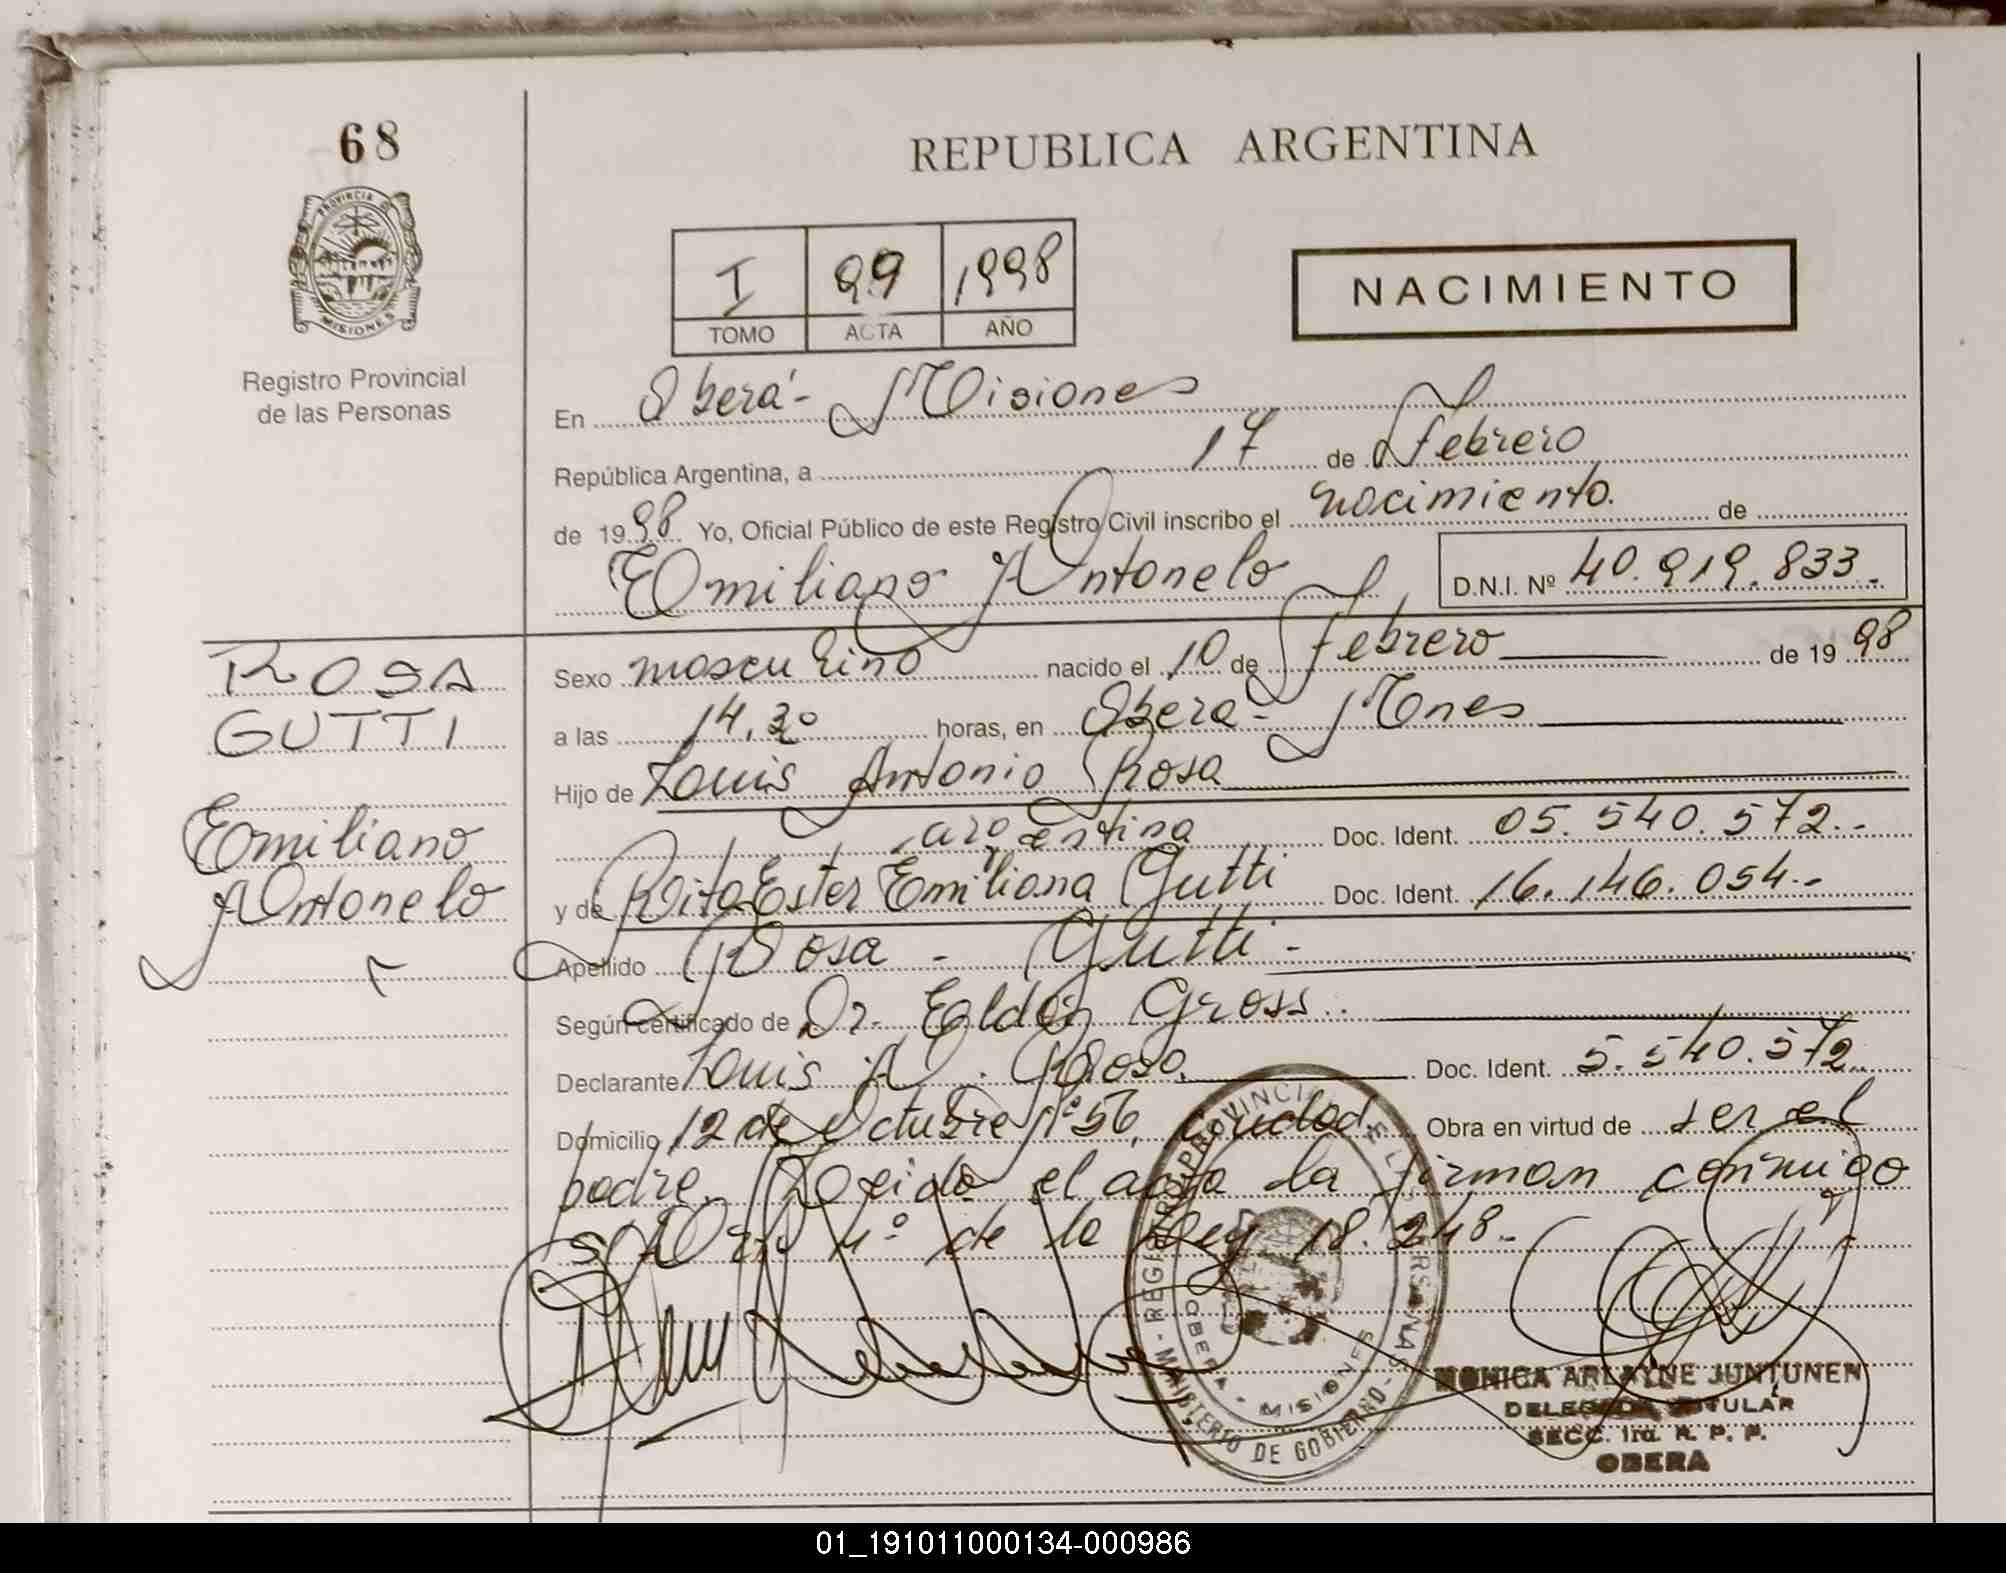 68
PROVINCIA DE
MISIONES
Registro Provincial
de las Personas
REPUBLICA ARGENTINA
I 99 1998
TOMO ACTA AÑO
NACIMIENTO
En Oberá - Misiones
República Argentina, a 17 de Febrero
de 1998 Yo, Oficial Público de este Registro Civil inscribo el nacimiento de
Emiliano Antonelo D.N.I. Nº 40.919.833.-
ROSA
GUTTI
Emiliano
Antonelo
Sexo masculino nacido el 10 de Febrero de 1998
a las 14,30 horas, en Oberá - Mnes
Hijo de Louis Antonio Rosa
argentina Doc. Ident. 05.540.572.-
y de Rita Ester Emiliana Gutti Doc. Ident. 16.146.054.-
Apellido Rosa - Gutti -
Según certificado de Dr. Eldor Gross.
Declarante Louis A. Rosa. Doc. Ident. 5.540.572
Domicilio 12 de Octubre Nº 56, Ciudad. Obra en virtud de ser el
padre. Leída el acta la firman conmigo
s/Art 4º de la Ley 18.248.-
REGISTRO PROVINCIAL DE LAS PERSONAS
OBERA - MISIONES
MINISTERIO DE GOBIERNO
MONICA ARLAYNE JUNTUNEN
DELEGADA TITULAR
SECC. 1ra. R. P. P.
OBERA
01_191011000134-000986